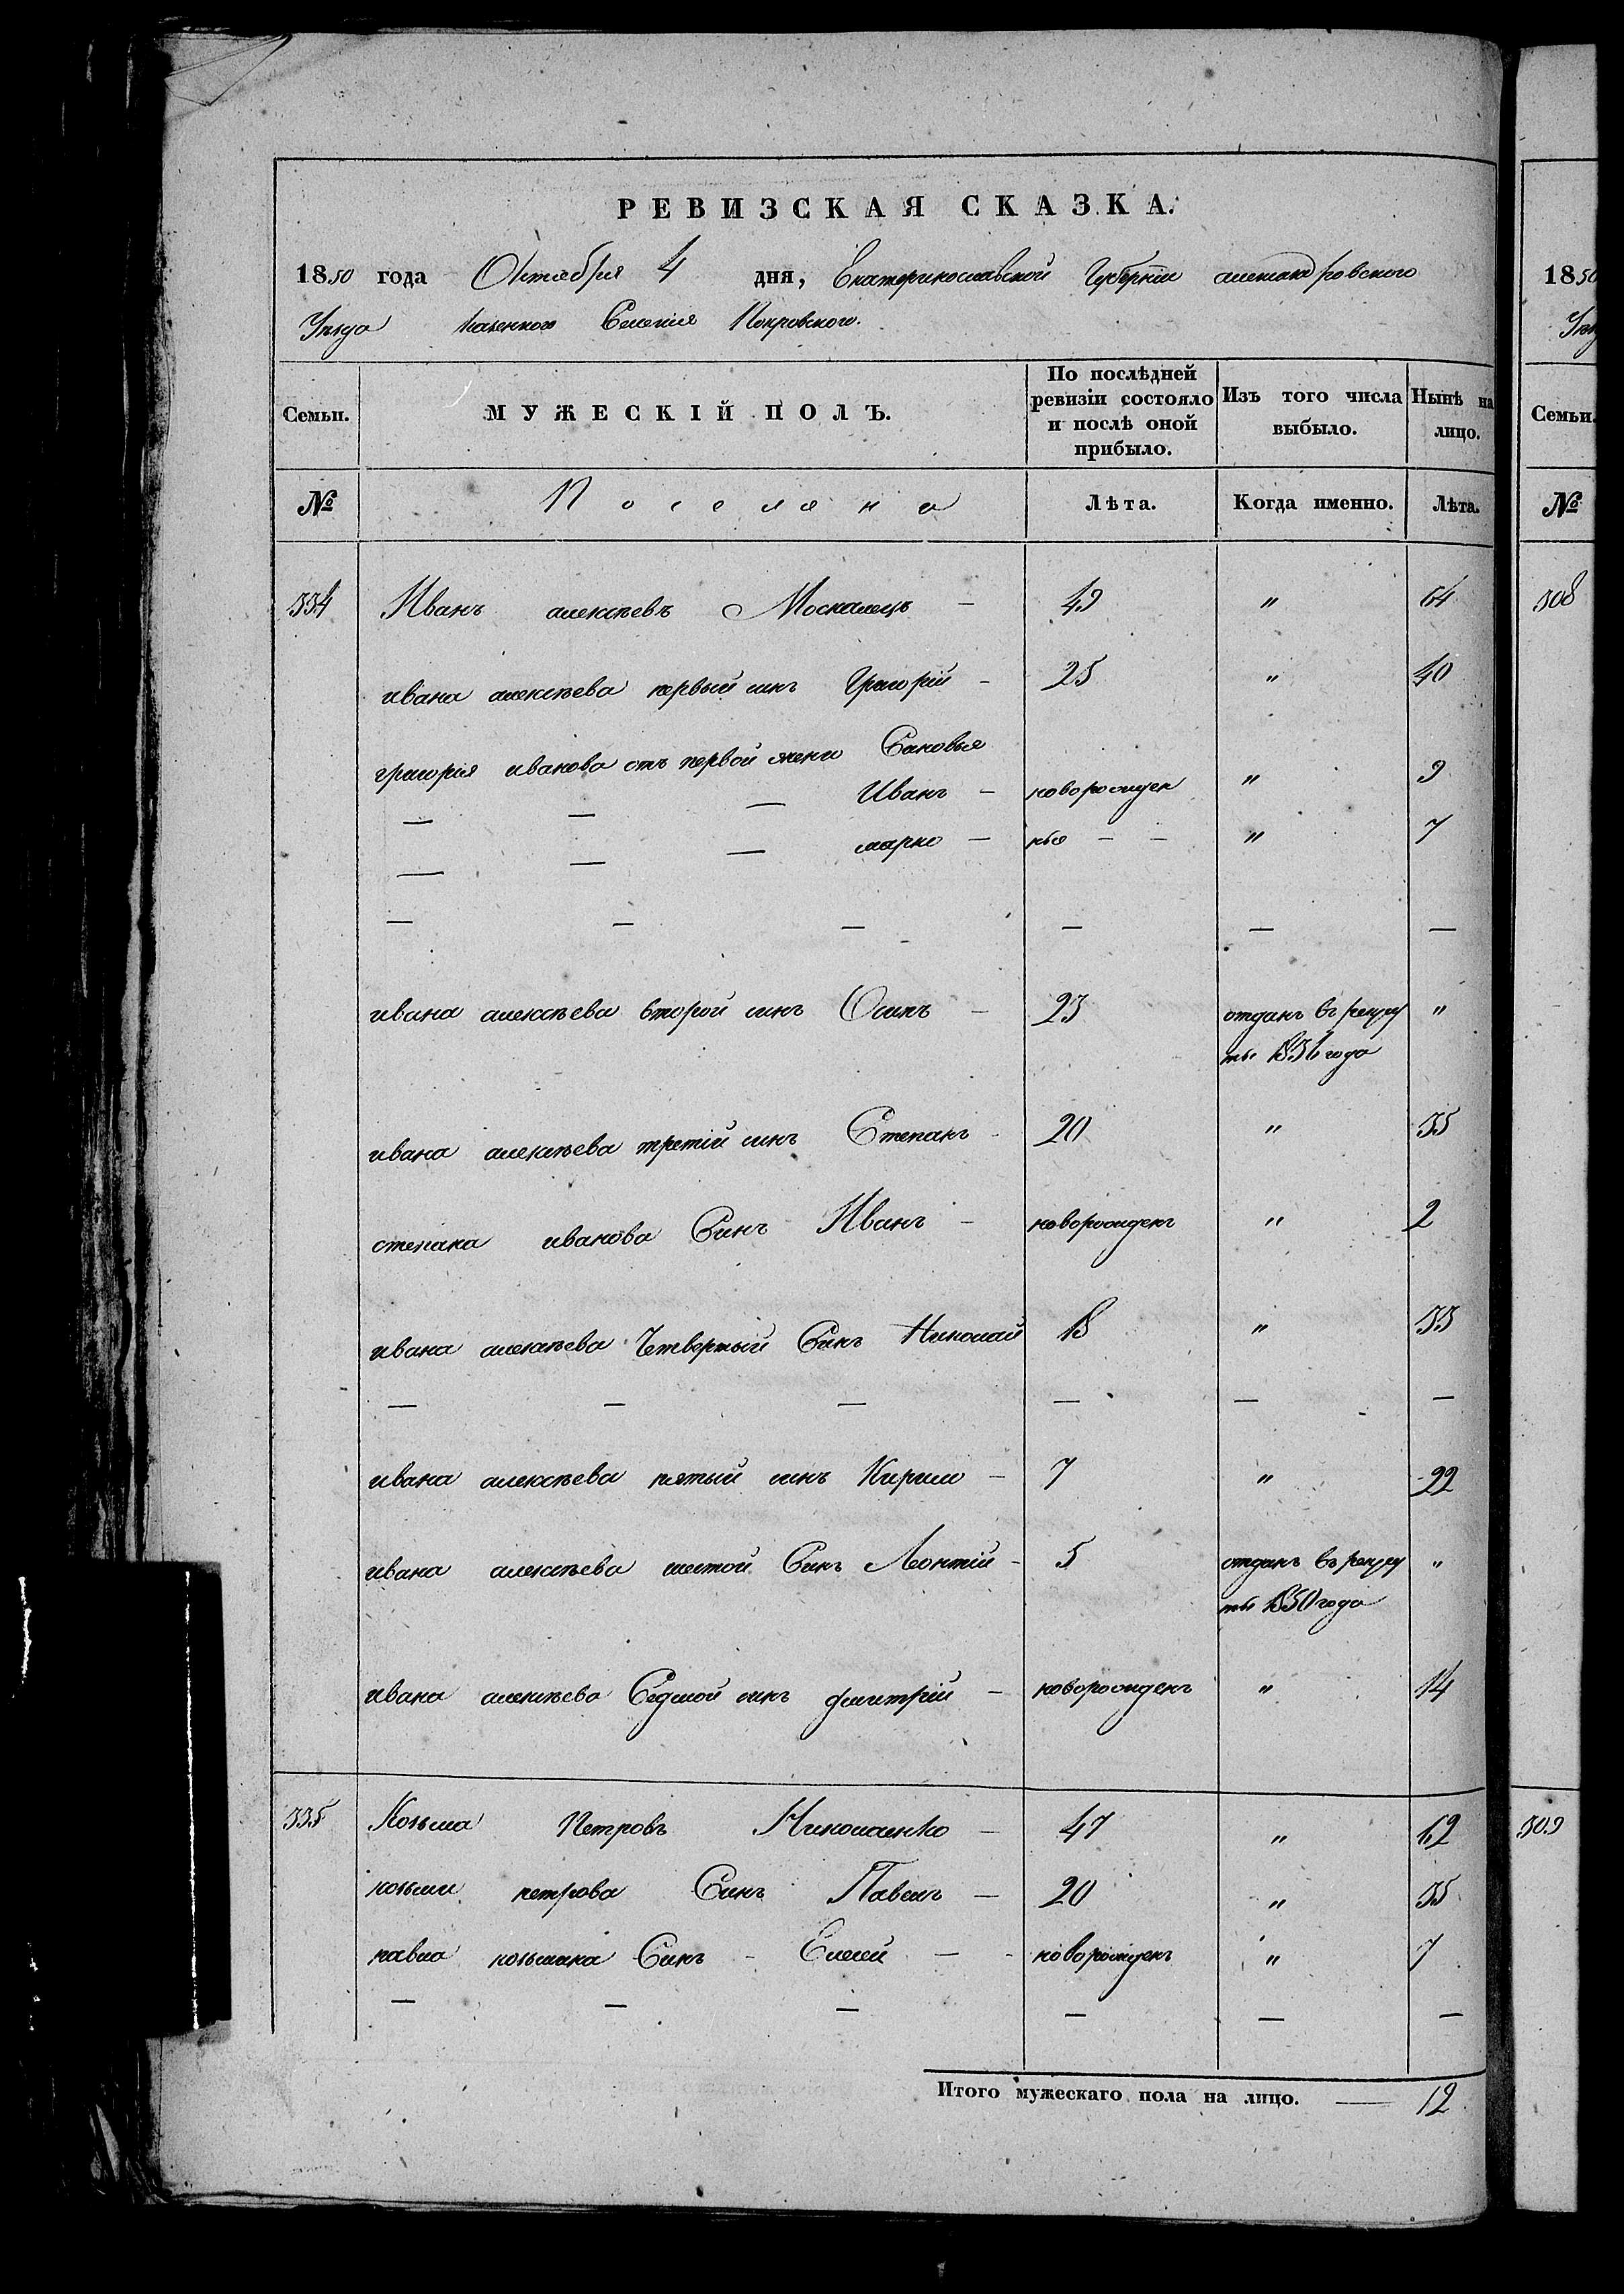 РЕВИЗСКАЯ СКАЗКА.
1850 года Октября 4 дня, Екатеринославской Губерніи александровского
Уѣзда Казенного Селенія Покровского.
Семьи. МУЖЕСКІЙ ПОЛЪ. По послѣдней ревизіи состояло и послѣ оной прибыло. Изъ того числа выбыло. Нынѣ на лицо.
№ Поселяна Лѣта. Когда именно. Лѣта.
334 Иванъ алексѣевъ Москалецъ — 49 " 64
ивана алексѣева первый синъ Григорій — 25 " 40
григорія иванова отъ первой жени Синовья
— — — Иванъ — новорожден " 9
— — — марко — ные — — " 7
— — — — — —
ивана алексѣева второй синъ Осипъ — 23 отданъ въ рекру "
ты 1836 года
ивана алексѣева третій синъ Степанъ — 20 " 35
степана иванова Синъ Иванъ — новорожденъ " 2
ивана алексѣева Четвертый Синъ Николай 18 " 33
— — — — — —
ивана алексѣева пятый синъ Кирило — 7 " 22
ивана алексѣева шестой Синъ Леонтій — 5 отданъ въ рекру "
ты 1850 года
ивана алексѣева Седмой синъ дмитрій — новорожденъ " 14
335 Козьма Петровъ Николаенко — 47 " 62
козьми петрова Синъ Павелъ — 20 " 35
павла козьмина Синъ — Елисей — новорожденъ " 7
— — — — — —
Итого мужескаго пола на лицо. — 12
1850
Семьи.
№
308
309